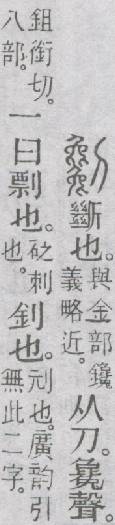 劖斷也。與金部鑱義略近。从刀。毚聲。
鉏銜切。八部。一曰剽也。砭刺也。釗也。刓也。廣韵引無此二字。